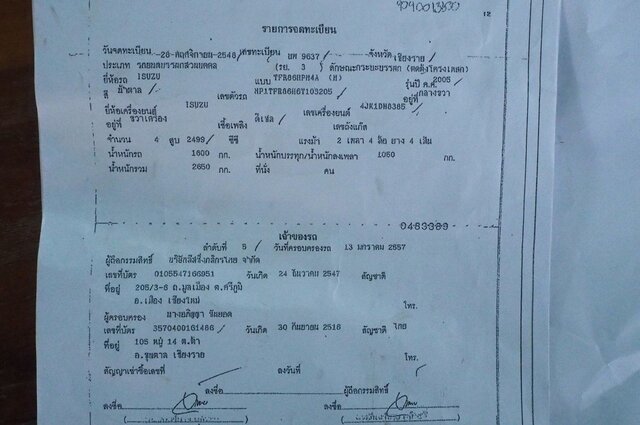 12
รายการจดทะเบียน
วันจดทะเบียน 28 พฤศจิกายน 2548 เลขทะเบียน ยท 9637 จังหวัด เชียงราย
ประเภท รถยนต์บรรทุกส่วนบุคคล (รย. 3 ) ลักษณะกระบะบรรทุก
ยี่ห้อรถ ISUZU แบบ TFR86HPM4A (M) รุ่นปี ค.ศ. 2005
สี น้ำตาล เลขตัวรถ MP1TFR86H6T103205 อยู่ที่ กลางขวา
ยี่ห้อเครื่องยนต์ ISUZU เลขเครื่องยนต์ 4JK1DM8385
อยู่ที่ ขวาเครื่อง เชื้อเพลิง ดีเซล เลขถังแก๊ส
จำนวน 4 สูบ 2499 ซีซี แรงม้า 2 เพลา 4 ล้อ ยาง 4 เส้น
น้ำหนักรถ 1600 กก. น้ำหนักบรรทุก/น้ำหนักลงเพลา 1050 กก.
น้ำหนักรวม 2650 กก. ที่นั่ง คน
0483389
เจ้าของรถ
ลำดับที่ 5 วันที่ครอบครองรถ 13 มกราคม 2557
ผู้ถือกรรมสิทธิ์ บริษัทลีสซิ่งกสิกรไทย จำกัด
เลขที่บัตร 0105547166951 วันเกิด 24 ธันวาคม 2547 สัญชาติ
ที่อยู่ 205/3-6 ถ.มูลเมือง ต.ศรีภูมิ
อ.เมือง เชียงใหม่ โทร.
ผู้ครอบครอง
เลขที่บัตร 3570400161486 วันเกิด 30 กันยายน 2516 สัญชาติ ไทย
ที่อยู่ 105 หมู่ 14 ต.ต้า
อ.ขุนตาล เชียงราย โทร.
สัญญาเช่าซื้อเลขที่ ลงวันที่
ลงชื่อ ผู้ถือกรรมสิทธิ์
ลงชื่อ ลงชื่อ